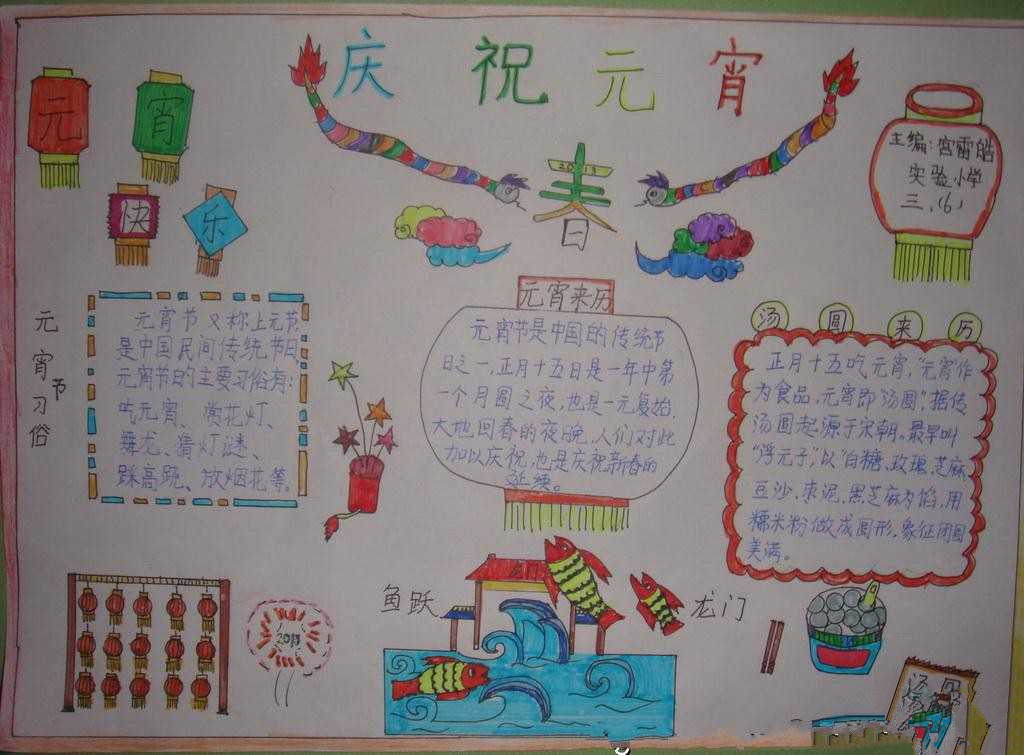 庆祝元宵
元
宵
快
乐
2013
春
主编:宫雷皓
实验小学
三、(6)
元宵节习俗
元宵节又称上元节
是中国民间传统节日
元宵节的主要习俗有:
吃元宵、赏花灯、
舞龙、猜灯谜、
踩高跷、放烟花等。
元宵来历
元宵节是中国的传统节
日之一,正月十五日是一年中第
一个月圆之夜,也是一元复始,
大地回春的夜晚,人们对此
加以庆祝,也是庆祝新春的
延续。
汤圆来历
正月十五吃元宵,“元宵作
为食品,元宵即“汤圆”,据传
汤圆起源于宋朝,最早叫
“浮元子”以“白糖、玫瑰、芝麻
豆沙、枣泥、黑芝麻为馅,用
糯米粉做成圆形,象征团圆
美满。
2013
鱼跃
龙门
汤圆